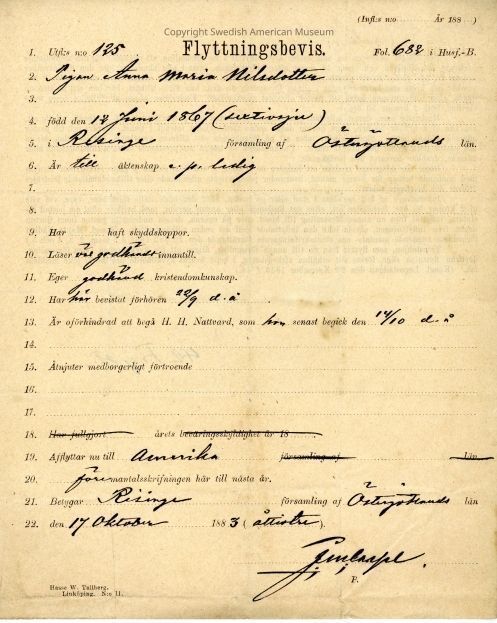 Copyright Swedish American Museum
(Infl: n:o År 188 )
1. Utfl: n:o 125 Flyttningsbevis. Fol. 682 i Husf.-B.
2. Pigan Anna Maria Nilsdotter
3.
4. född den 12 Juni 1867 (sextiosju)
5. i Risinge församling af Östergötlands län.
6. Är till äktenskap e. p. ledig
7.
8.
9. Har haft skyddskoppor.
10. Läser väl godkändt innantill.
11. Eger godkänd kristendomkunskap.
12. Har här bevistat förhören 22/9 d. å
13. Är oförhindrad att begå H. H. Nattvard, som hon senast begick den 14/10 d. å
14.
15. Åtnjuter medborgerligt förtroende
16.
17.
18. Har fullgjort årets beväringsskyldighet år 18
19. Afflyttar nu till Amerika församling af län
20. före mantalsskrifningen här till nästa år.
21. Betygar Risinge församling af Östergötlands län
22. den 17 Oktober 1883 (åttiotre).
P.
Hasse W. Tullberg.
Linköping. N:o 11.